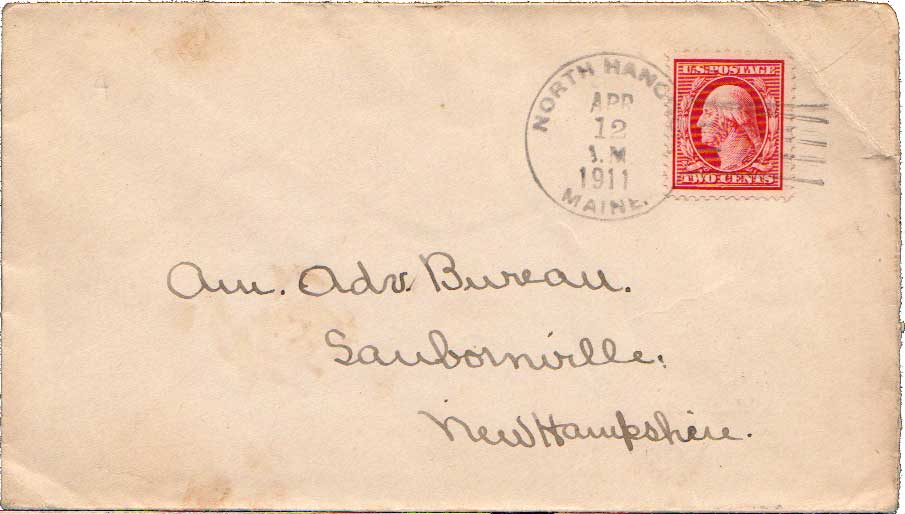 NORTH HANC
APR
12
M
1911
MAINE.
U.S. POSTAGE
TWO CENTS
Am. Adv. Bureau.
Sanbornville.
New Hampshire.